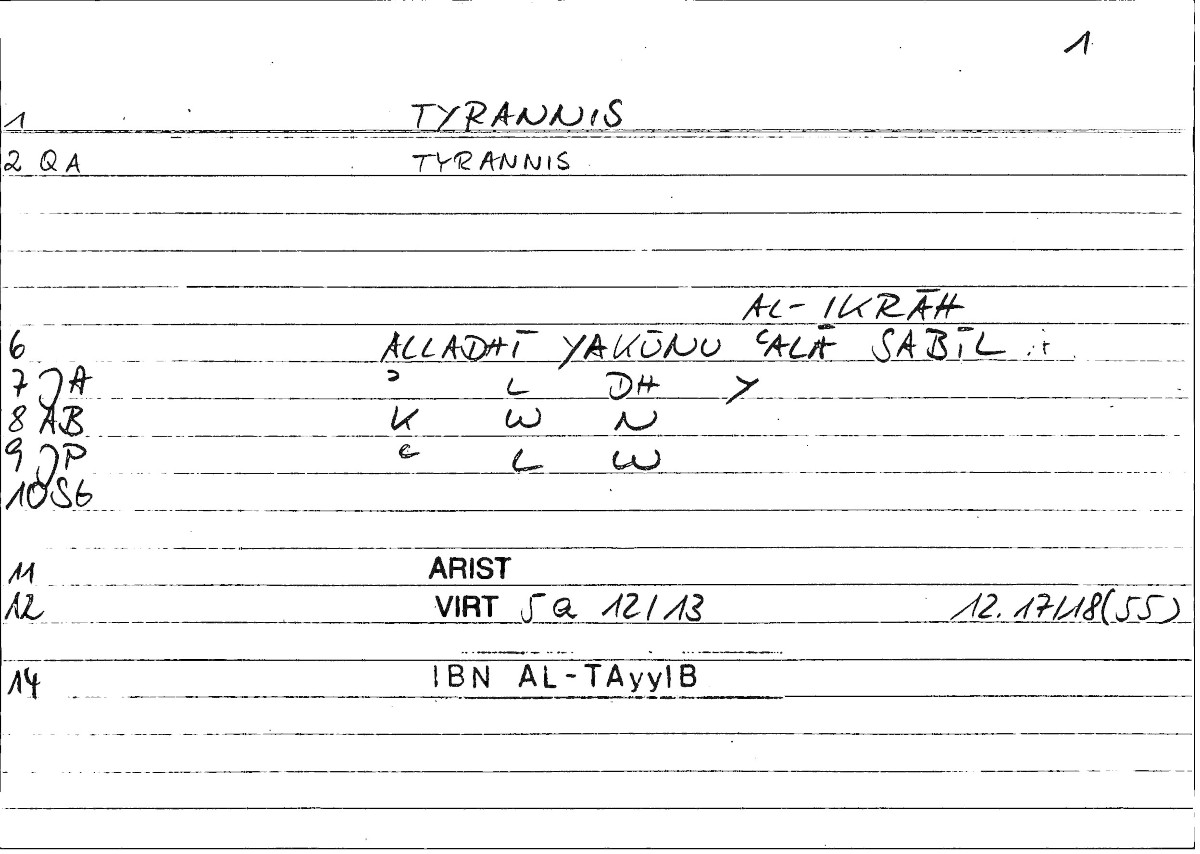 1
1 TYRANNIS
2 QA TYRANNIS
AL-IKRĀH
6 ALLADHĪ YAKŪNU ʿALĀ SABĪL
7 JA ʾ L DH Y
8 AB K W N
9 JP ʿ L W
10 SG
11 ARIST
12 VIRT 5 a 12/13 12.17/18(55)
14 IBN AL-TAyyIB